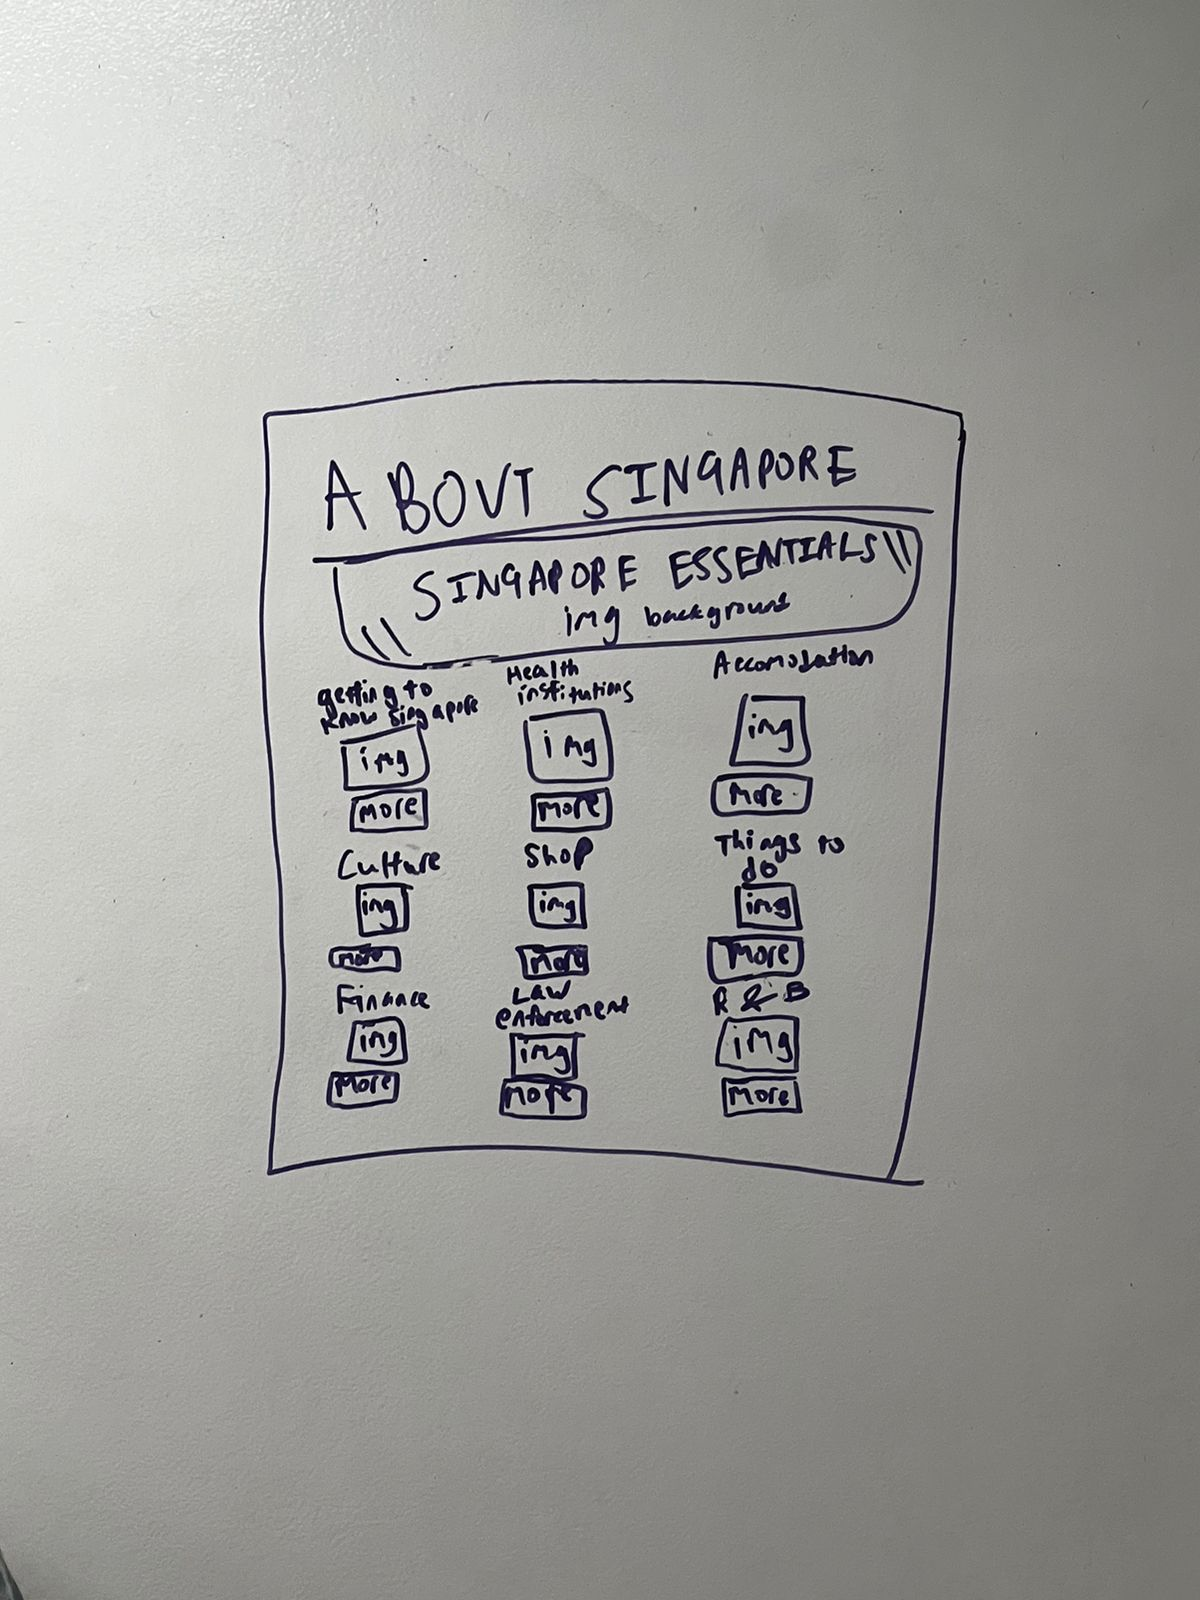 ABOUT SINGAPORE
SINGAPORE ESSENTIALS
img background
getting to
know singapore
img
More
Health
institutions
img
More
Accomodation
img
More
Culture
img
More
Shop
img
More
Things to
do
img
More
Finance
img
More
Law
enforcement
img
More
R & B
img
More